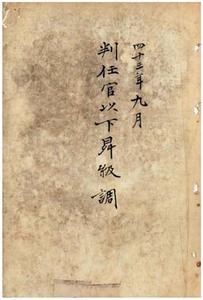 四十三年九月
判任官以下昇級調